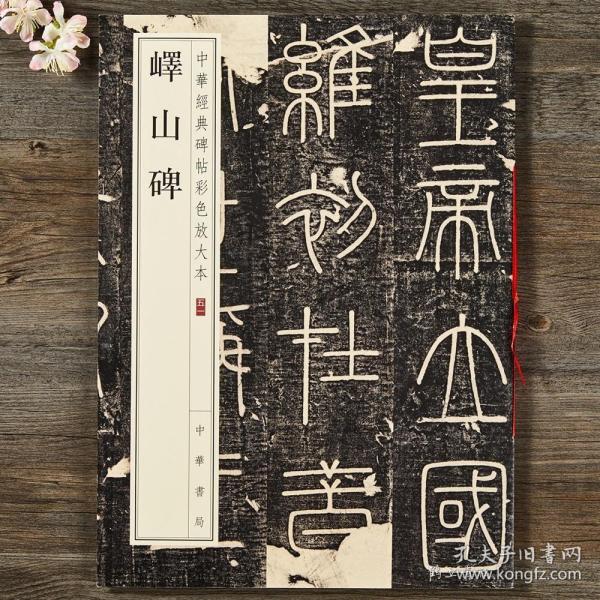 皇帝立國
維初在昔
嶧山碑
中華經典碑帖彩色放大本
五一
中華書局
孔夫子旧书网
www.kongfz.com